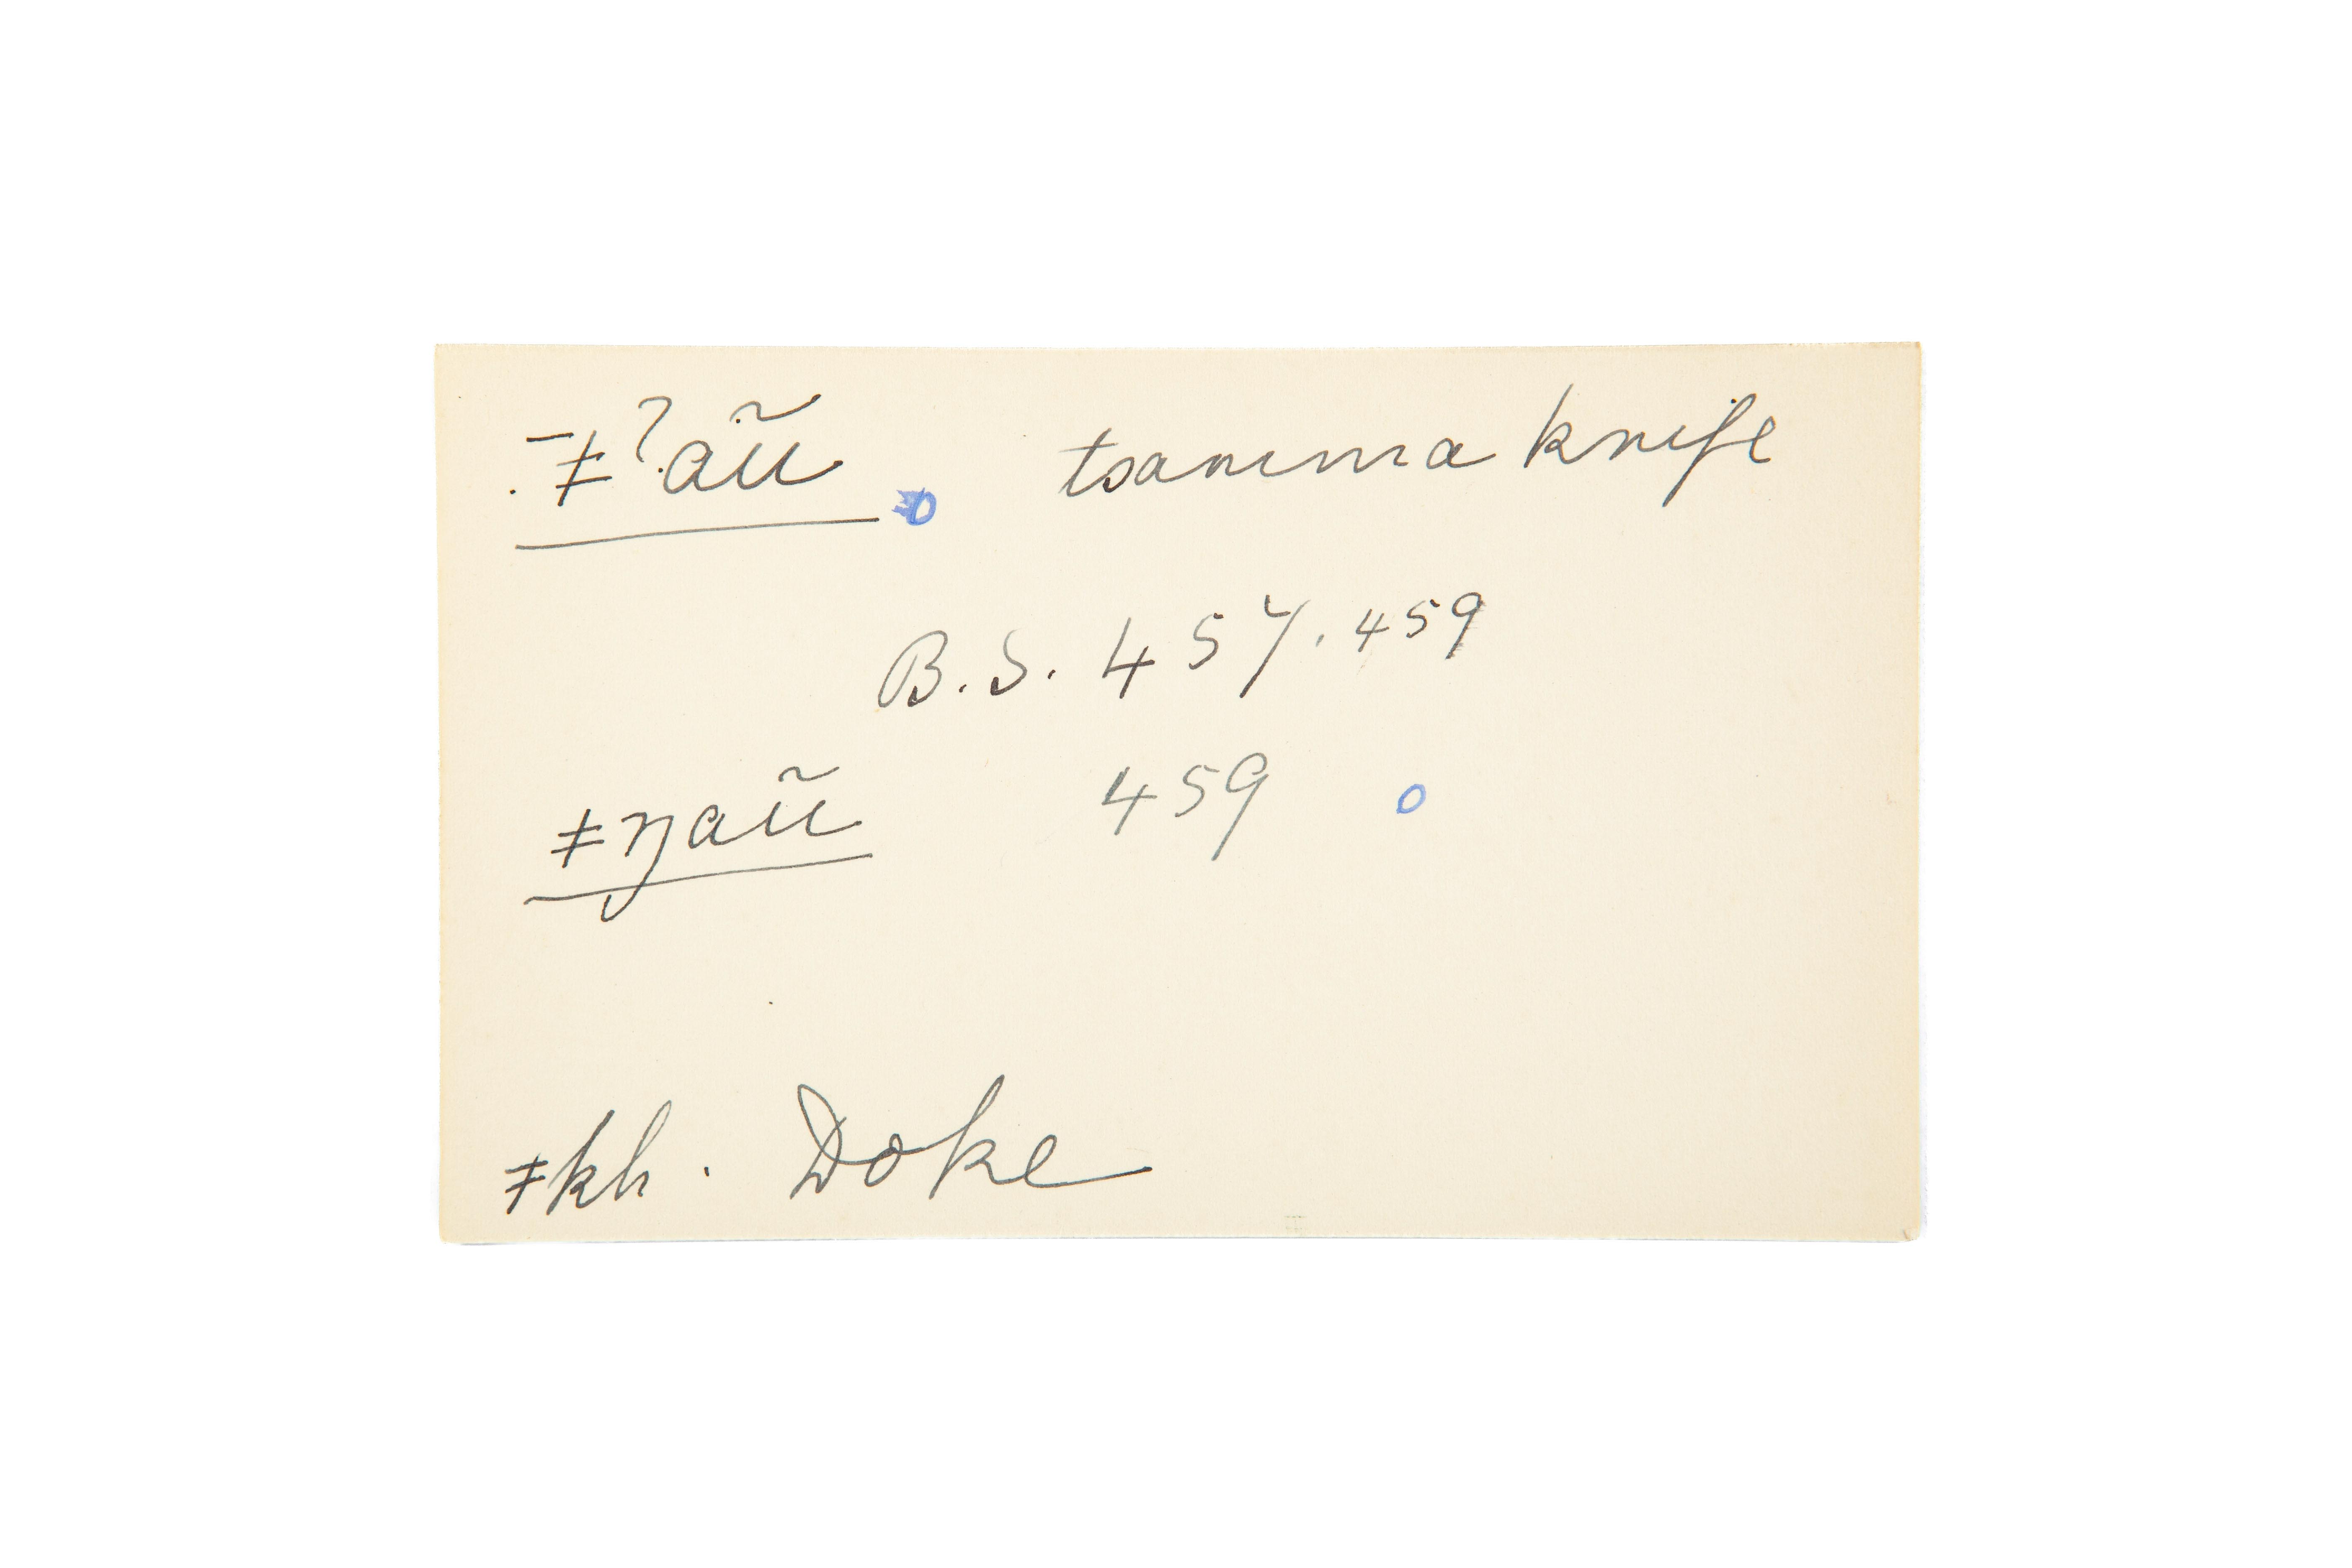 ‾ǂˀaũ tsamma knife
B.S. 457, 459
ǂŋaũ 459
ǂkh. Doke